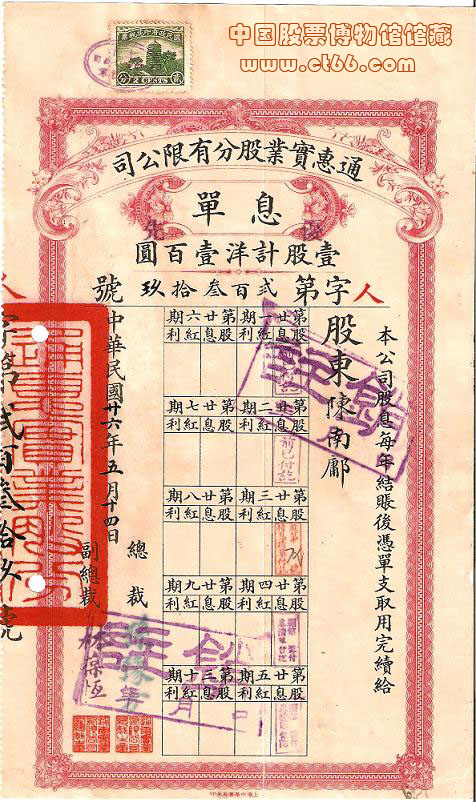 中国股票博物馆馆藏
www.ct66.com
2 CENTS
通惠實業股分有限公司
息單
優先
壹股計洋壹百圓
人字第弍百叁拾玖號
本公司股息每年結賬後憑單支取用完續給
股東陳南鄺
第廿一期
股息紅利
第廿二期
股息紅利
前已付訖
第廿三期
股息紅利
第廿四期
股息紅利
第廿五期
股息紅利
第廿六期
股息紅利
第廿七期
股息紅利
第廿八期
股息紅利
第廿九期
股息紅利
第三十期
股息紅利
中華民國廿六年五月十四日
總裁
副總裁
註銷
註銷
年 月 日
人字第弍百叁拾玖號